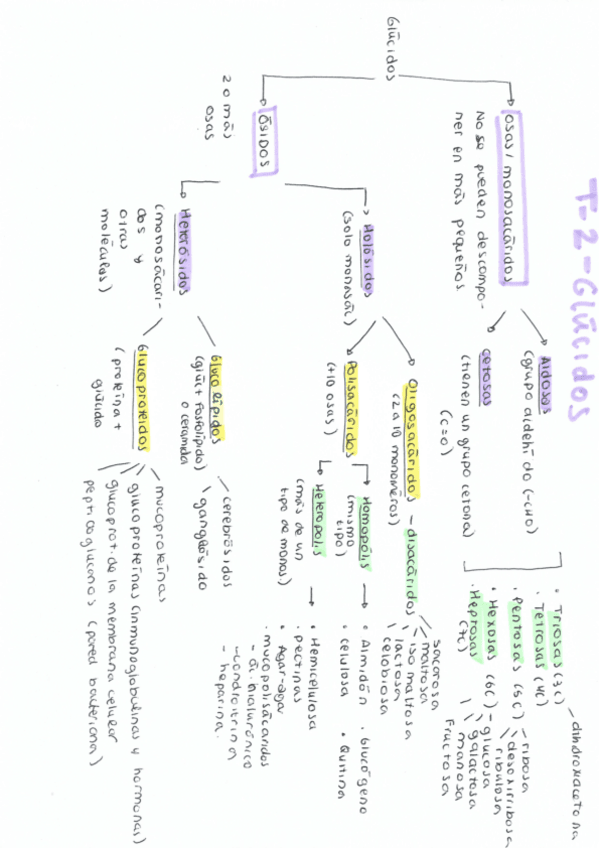 T-2-Glúcidos
Glúcidos
osas/monosacáridos
No se pueden descompo-
ner en más pequeños
Aldosas
(grupo aldehído (-CHO)
cetosas
(tienen un grupo cetona)
(C=O)
• Triosas (3C) - dihidroxiacetona
• Tetrosas (4C)
• Pentosas (5C)
ribosa
desoxirribosa
ribulosa
• Hexosas (6C)
glucosa
galactosa
manosa
Fructosa
• Heptosas
(7C)
ÓSIDOS
2 o más
osas
Holósidos
(solo monosác)
Oligosacáridos - disacáridos
(2 a 10 monómeros)
sacarosa
maltosa
isomaltosa
lactosa
celobiosa
Polisacáridos
(+10 osas)
Homopolis
(mismo
tipo)
• Almidón . Glucógeno
• celulosa • Quitina
Heteropolis
(más de un
tipo de monos)
• Hemicelulosa
. pectinas
• Agar-agar
. mucopolisacáridos
- ác. hialurónico
- condroitrina
- heparina.
Heterósidos
(monosacári-
dos y
otras
moléculas)
Glucolípidos
(glúc + fosfolípido)
o ceramida
cerebrósidos
gangliósido
Glucoproteidos
(proteína +
glúcido
mucoproteínas
glucoproteínas (inmunoglobulinas y hormonas)
glucoprot. de la membrana celular
peptidoglucanos (pared bacteriana)